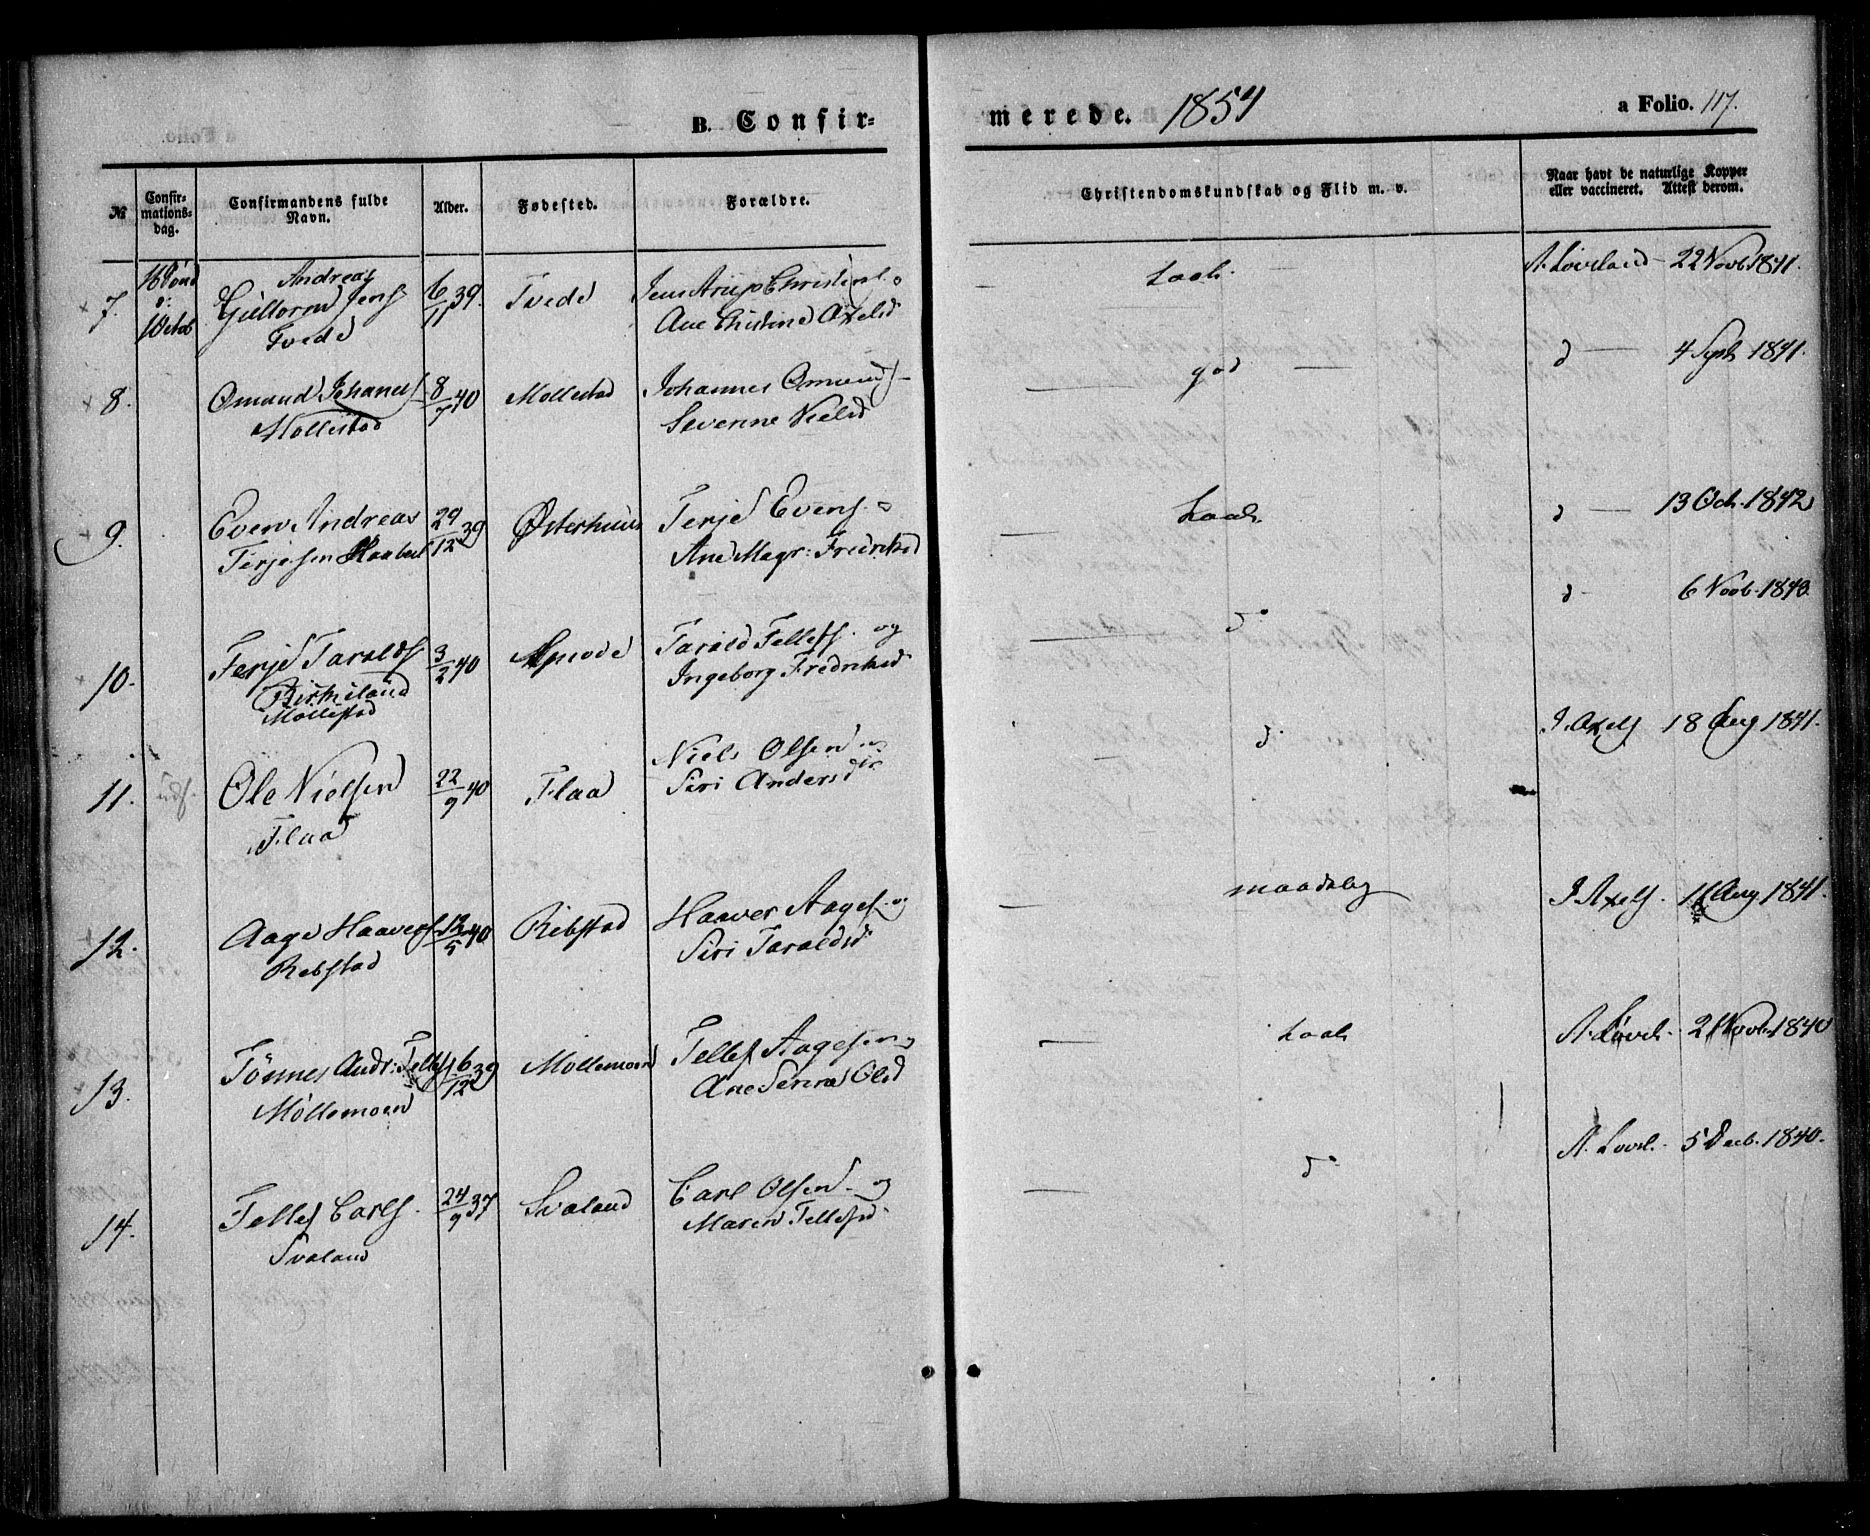 B. Confir-
merede. 1854
a Folio. 117.
№
Confir-
mations-
dag.
Confirmandens fulde
Navn.
Alder.
Fødested.
Forældre.
Christendomskundskab og Flid m. v.
Naar havt de naturlige Kopper
eller vaccineret. Attest derom.
7.
1 Octob
Andreas
Guttorm Jens
Tvede
6/11 39.
Tvede
Jens Arup Christens. o
Ane Christine Axelsd
Laab.
A. Lovland 22 Novb 1841.
8.
Omund Johannes
Mollestad
8/7 40
Mollestad
Johannes Omunds
Severine Nielsd
god
d 4 Sept 1841.
9.
Even Andreas
Terjesen Haabest
29/12 39
Østerhuus
Terje Evens. o
Ane Magr: Fredriksd
Laab.
d 13 Oct. 1842
10.
Terje Taralds
Birkeland
Mollestad
3/2 40
Tarald Tellefs. og
Ingeborg Fredriksd
d°
d 6 Novb. 1840.
11.
Ole Nielsen
Flaa
22/9 40
Flaa
Niels Olsen
Siri Andersd
d°
J. Axels 18 Aug 1841.
12.
Aage Haavers
Rebstad
13/5 40
Rebstad
Haaver Aages. og
Siri Taraldsd
maadelig
J. Axels. Aug 1841.
13.
Tönnes Andr: Tellefs
Möllemoen
16/12 39
Mollemoen
Tellef Aagesen o
Ane Serine Olsd
Laab
A. Lovl. 2 Novb. 1840
14.
Tellef Carls.
Svaland
24/9 37
Svaland
Carl Olsen og
Maren Tellefsd
d°
A. Lovl. 5 Decb. 1840.